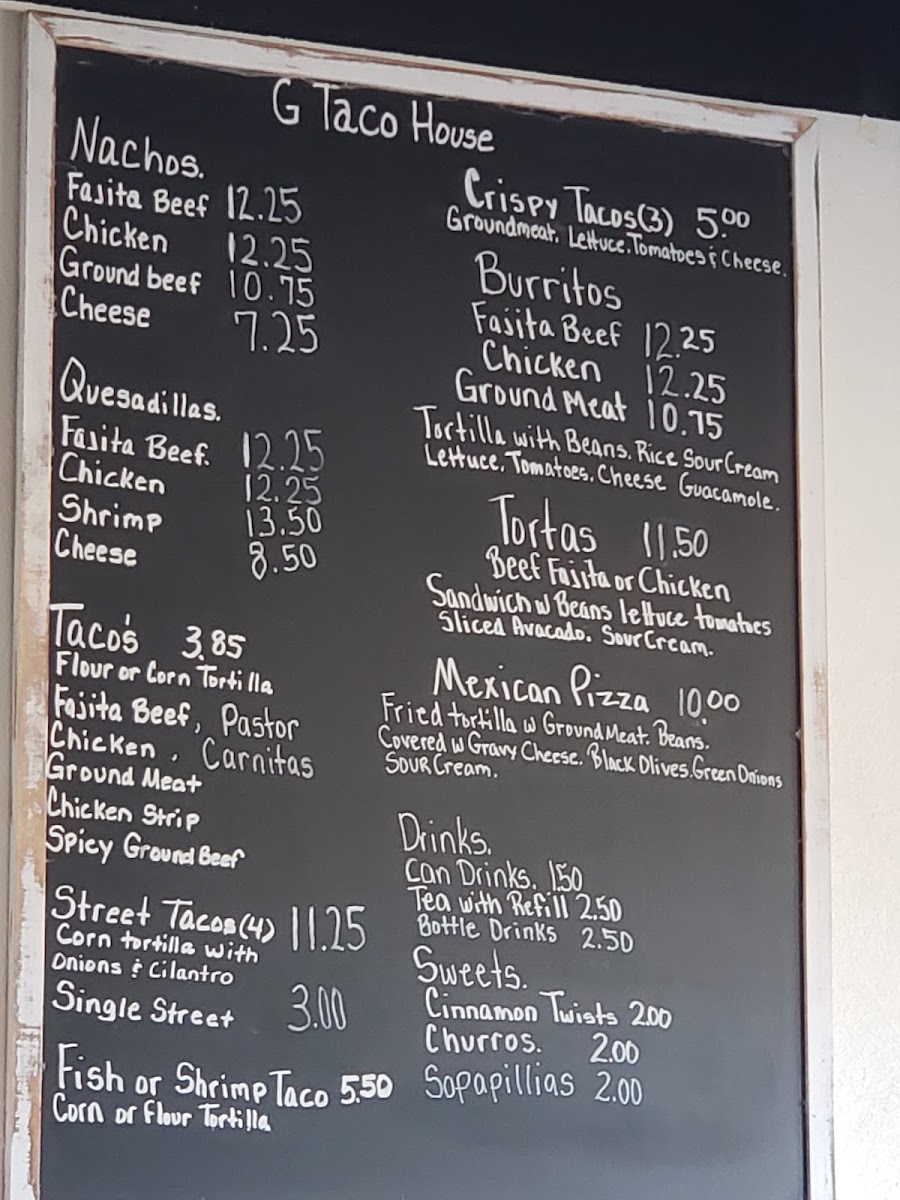 G Taco House
Nachos.
Fajita Beef 12.25
Chicken 12.25
Ground beef 10.75
Cheese 7.25
Quesadillas.
Fajita Beef. 12.25
Chicken 12.25
Shrimp 13.50
Cheese 8.50
Taco's 3.85
Flour or Corn Tortilla
Fajita Beef, Pastor
Chicken, Carnitas
Ground Meat
Chicken Strip
Spicy Ground Beef
Street Tacos(4) 11.25
Corn tortilla with
Onions & Cilantro
Single Street 3.00
Fish or Shrimp Taco 5.50
Corn or Flour Tortilla
Crispy Tacos(3) 5.00
Groundmeat. Lettuce. Tomatoes & Cheese.
Burritos
Fajita Beef 12.25
Chicken 12.25
Ground Meat 10.75
Tortilla with Beans. Rice Sour Cream
Lettuce. Tomatoes. Cheese Guacamole.
Tortas 11.50
Beef Fajita or Chicken
Sandwich w Beans lettuce tomatoes
Sliced Avacado. Sour Cream.
Mexican Pizza 10.00
Fried tortilla w Ground Meat. Beans.
Covered w Gravy Cheese. Black Olives. Green Onions
Sour Cream.
Drinks.
Can Drinks. 1.50
Tea with Refill 2.50
Bottle Drinks 2.50
Sweets.
Cinnamon Twists 2.00
Churros. 2.00
Sopapillias 2.00